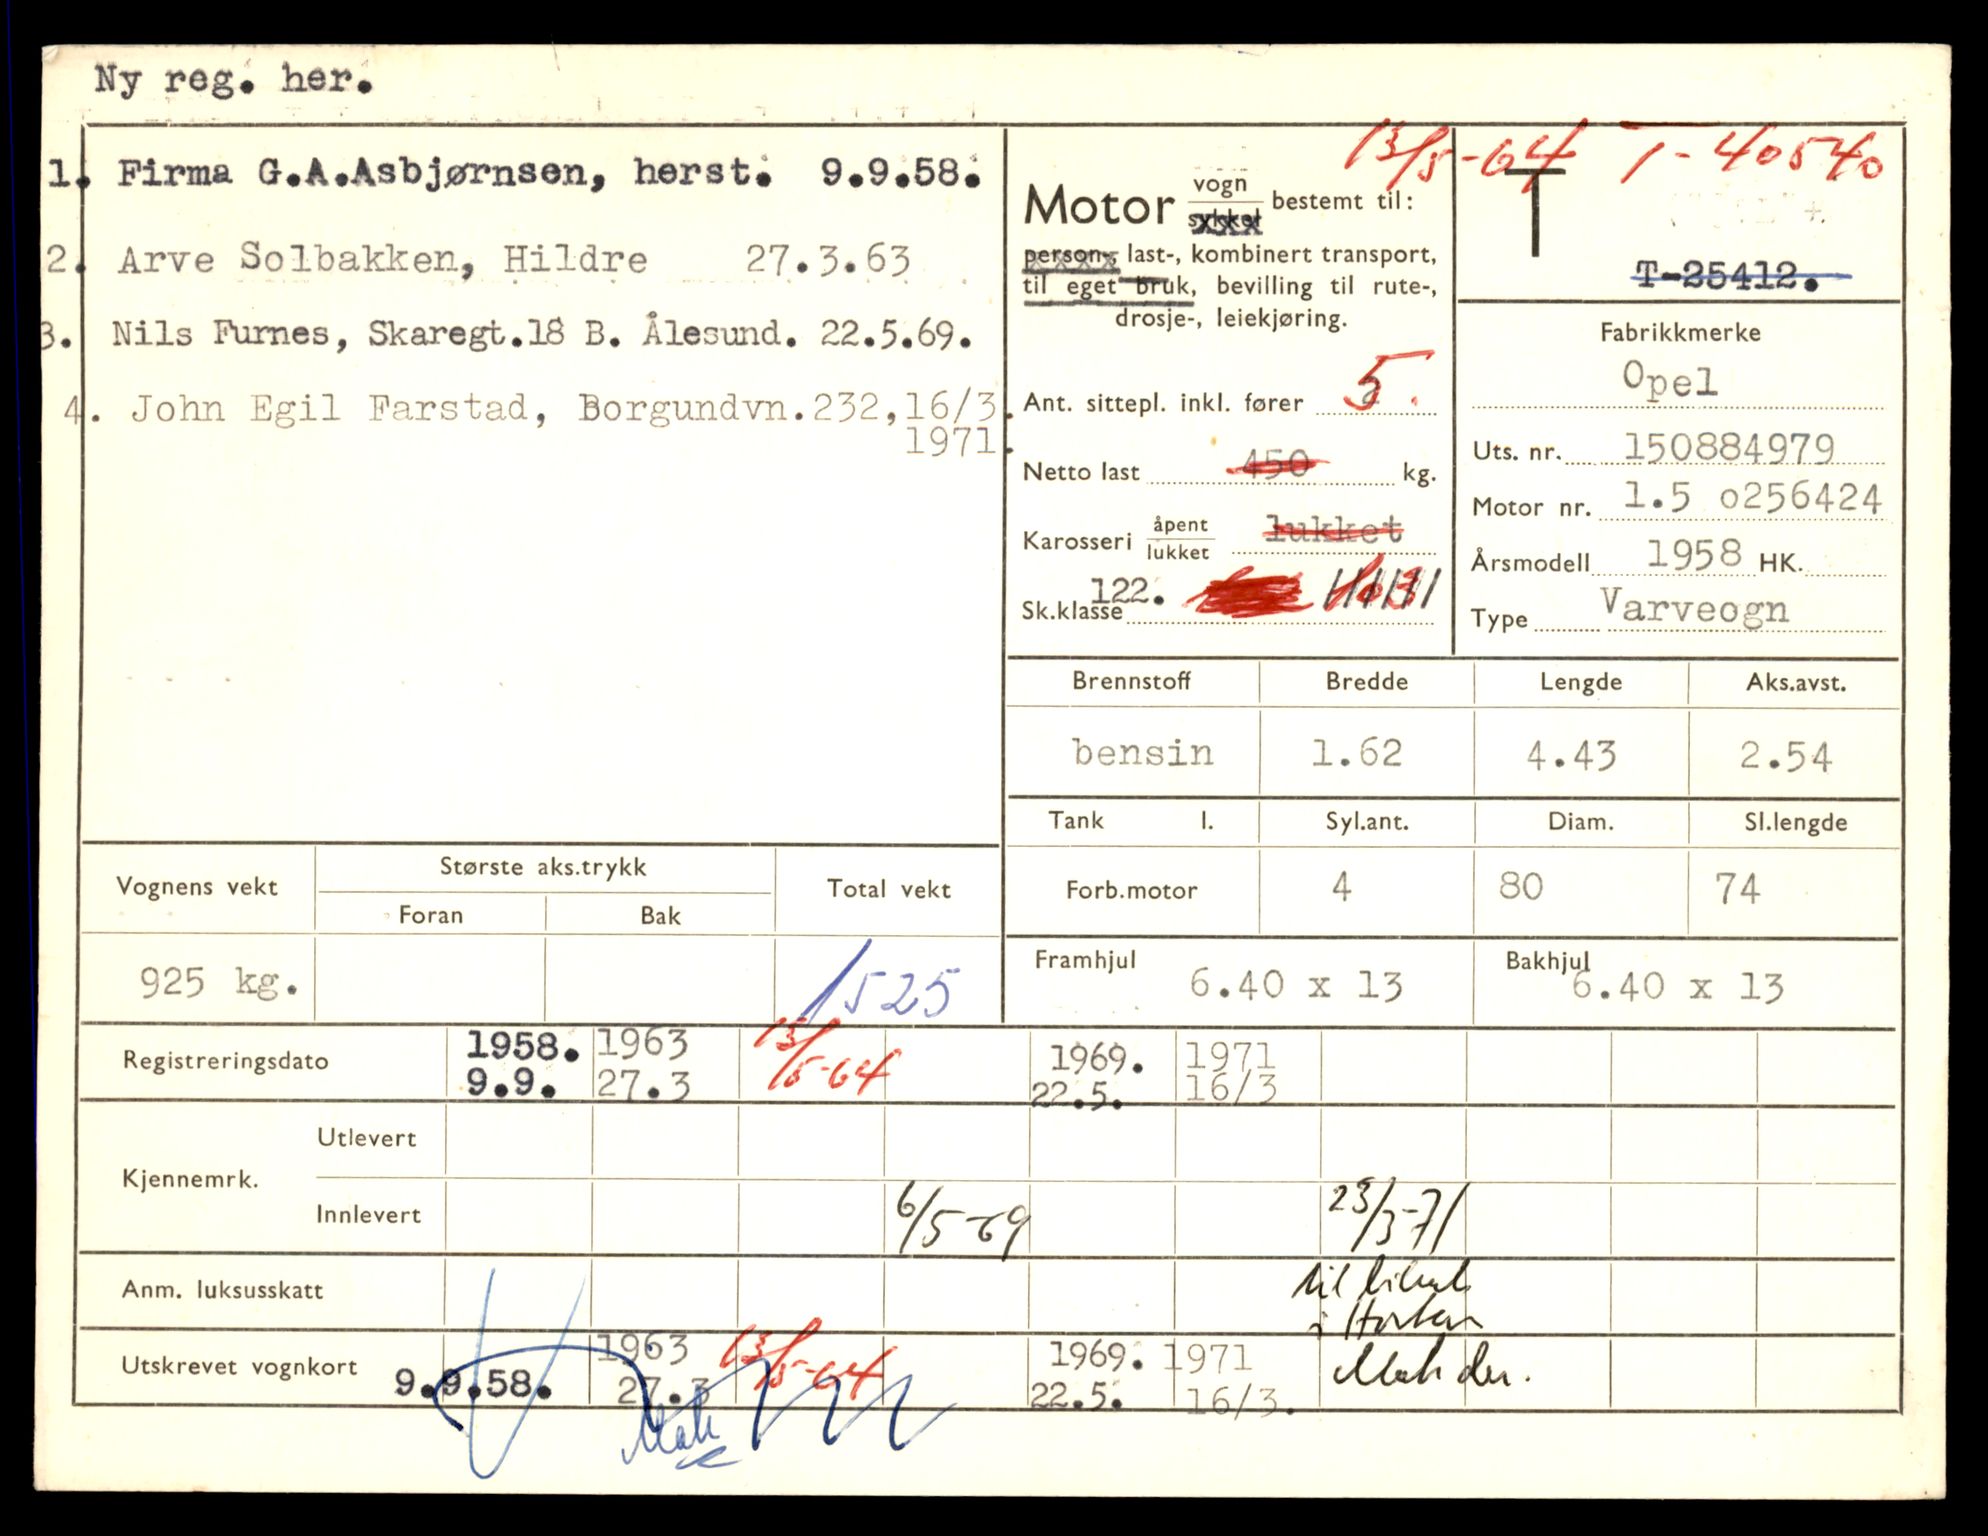 Ny reg. her.
1. Firma G.A.Asbjørnsen, herst. 9.9.58.
2. Arve Solbakken, Hildre 27.3.63
3. Nils Furnes, Skaregt.18 B. Ålesund. 22.5.69.
4. John Egil Farstad, Borgundvn.232, 16/3.
1971.
13/5-64 T-40540
Motor vogn sykkel bestemt til:
person-, last-, kombinert transport,
til eget bruk, bevilling til rute-,
drosje-, leiekjøring.
Ant. sittepl. inkl. fører 5.
Netto last 450 kg.
Karosseri åpent lukket lukket
Sk.klasse 122.
T
T-25412.
Fabrikkmerke
Opel
Uts. nr. 150884979
Motor nr. 1.5 o256424
Årsmodell 1958 HK.
Type Varveogn
Brennstoff Bredde Lengde Aks.avst.
bensin 1.62 4.43 2.54
Tank l. Syl.ant. Diam. Sl.lengde
Forb.motor 4 80 74
Framhjul 6.40 x 13 Bakhjul 6.40 x 13
Vognens vekt Største aks.trykk Total vekt
Foran Bak
925 kg. 1525
Registreringsdato 1958. 1963 13/5-64 1969. 1971
9.9. 27.3 22.5. 16/3
Kjennemrk. Utlevert
Innlevert 6/5-69 23/3-71
Anm. luksusskatt til
i Horten
Utskrevet vognkort 9.9.58. 1963 13/5-64 1969. 1971
27.3 22.5. 16/3.